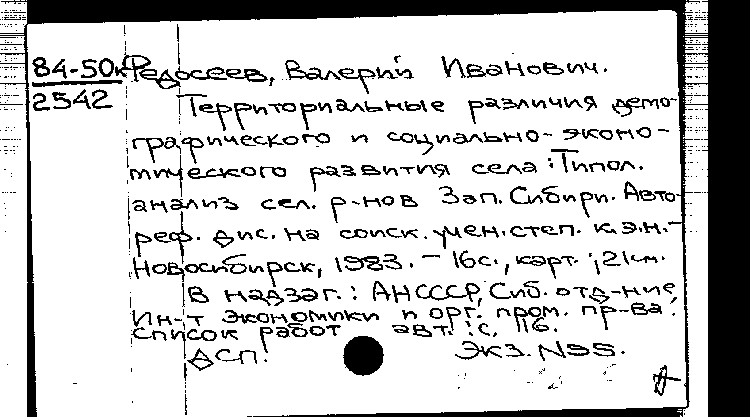 84-50к Федосеев, Валерий Иванович.
2542
Территориальные различия демо-
графического и социально-эконо-
мического развития села: Типол.
анализ сел. р-нов Зап. Сибири. Авто-
реф. дис. на соиск. учен. степ. к.э.н.-
Новосибирск, 1983. - 16с., карт.; 21см.
В надзаг.: АНСССР, Сиб. отд-ние,
Ин-т экономики и орг. пром. пр-ва.
Список работ авт.: с. 116.
ДСП! Экз. N55.